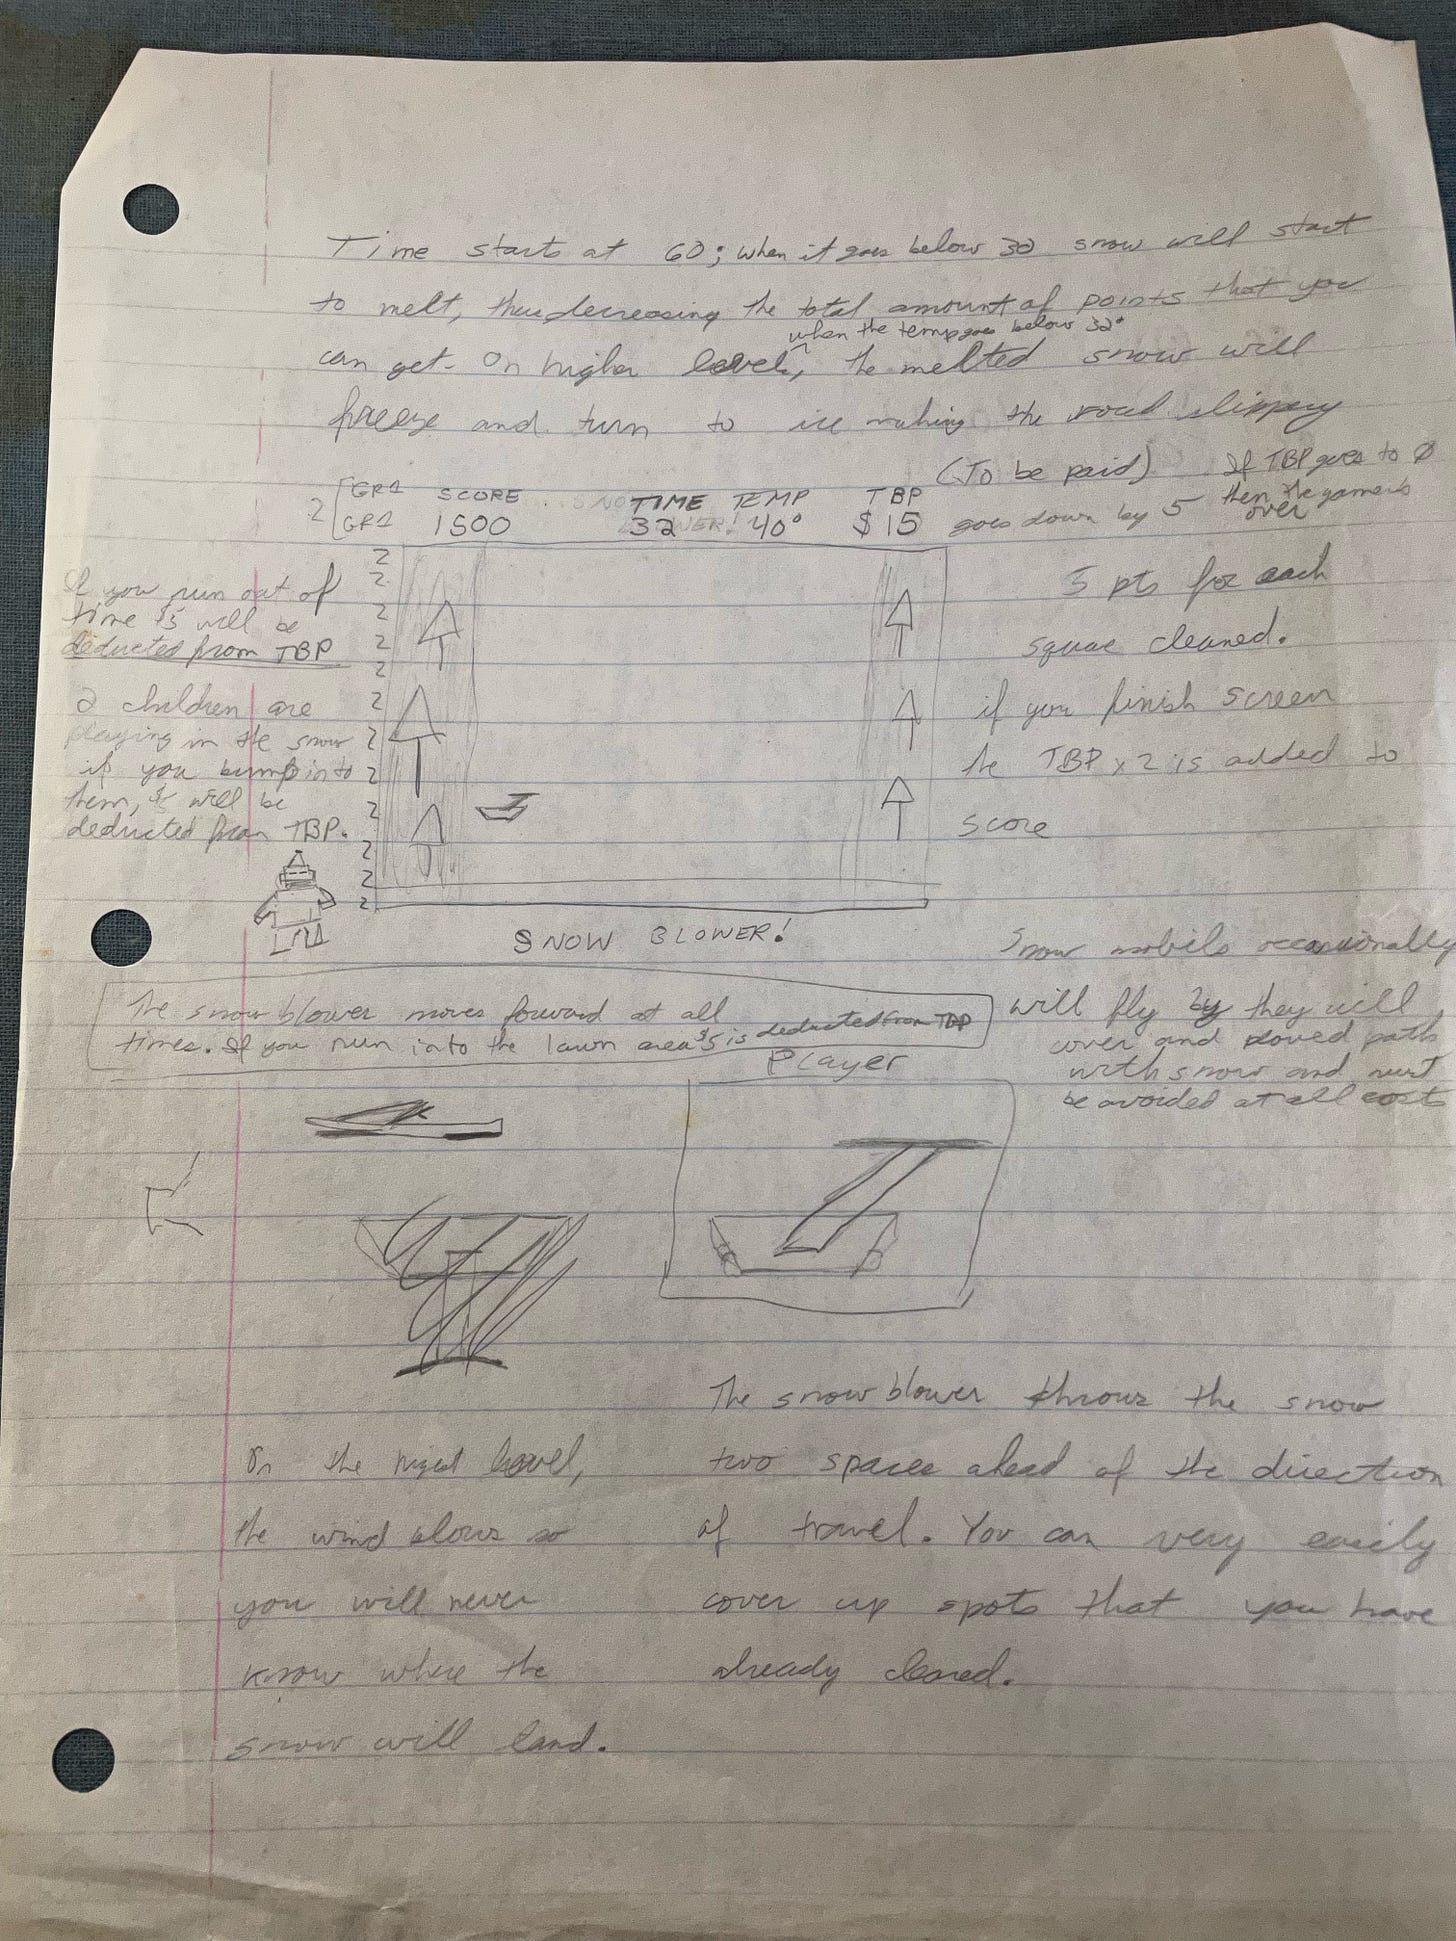 Time starts at 60; when it goes below 30 snow will start
to melt, thus decreasing the total amount of points that you
when the temp goes below 32°
can get. On higher levels, the melted snow will
freeze and turn to ice making the road slippery
(To be paid) If TBP goes to Ø
then the game is
over
2 [GR1 SCORE TIME TEMP TBP
[GR1 1500 32 40° $15 goes down by 5
If you run out of
time $5 will be
deducted from TBP
2 children are
playing in the snow
if you bump into
them, $5 will be
deducted from TBP.
2
2
2
2
2
2
2
2
2
2
2
2
5 pts for each
square cleaned.
if you finish screen
the TBP x 2 is added to
score
SNOW BLOWER!
Snow mobils occasionally
will fly by they will
cover and ploved path
with snow and must
be avoided at all costs
The snow blower moves forward at all
times. If you run into the lawn area $5 is deducted from TBP
Player
The snow blower throws the snow
two spaces ahead of the direction
of travel. You can very easily
cover up spots that you have
already cleared.
On the level,
the wind blows so
you will never
know where the
snow will land.